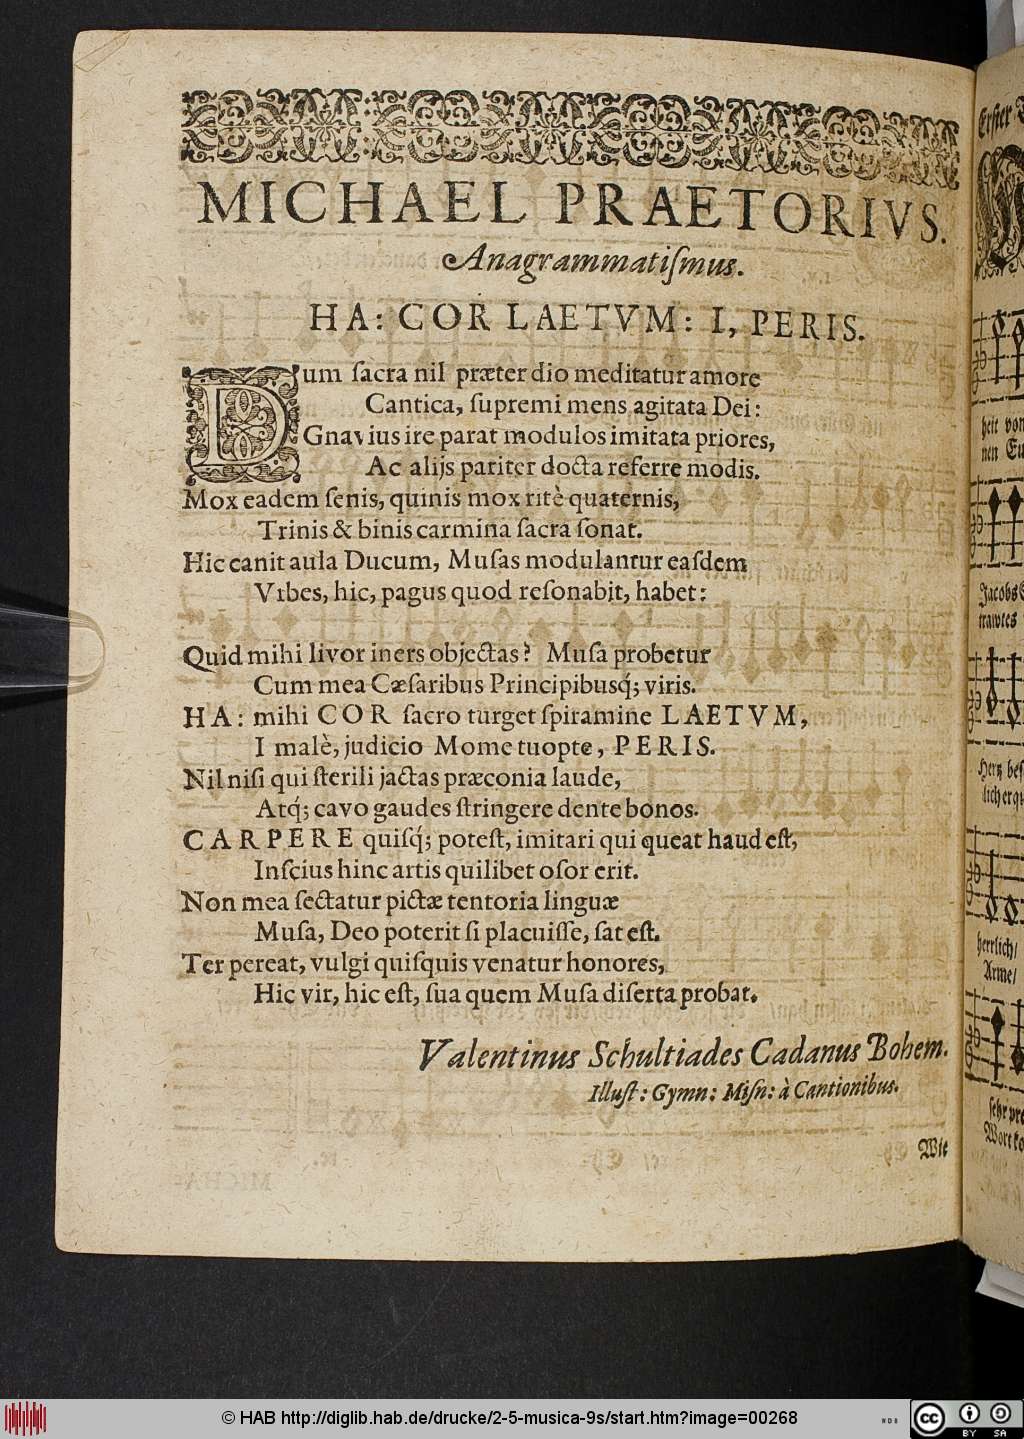 MICHAEL PRAETORIVS.
Anagrammatiſmus.
HA: COR LAETVM: I, PERIS.
Dum ſacra nil præter dio meditatur amore
Cantica, ſupremi mens agitata Dei:
Gnavius ire parat modulos imitata priores,
Ac alijs pariter docta referre modis.
Mox eadem ſenis, quinis mox ritè quaternis,
Trinis & binis carmina ſacra ſonat.
Hic canit aula Ducum, Muſas modulantur eaſdem
Vrbes, hic, pagus quod reſonabit, habet:
Quid mihi livor iners objectas? Muſa probetur
Cum mea Cæſaribus Principibusq́; viris.
HA: mihi COR ſacro turget ſpiramine LAETVM,
I malè, judicio Mome tuopte, PERIS.
Nil niſi qui ſterili jactas præconia laude,
Atq́; cavo gaudes ſtringere dente bonos.
CARPERE quiſq́; poteſt, imitari qui queat haud eſt,
Inſcius hinc artis quilibet oſor erit.
Non mea ſectatur pictæ tentoria linguæ
Muſa, Deo poterit ſi placuiſſe, ſat eſt.
Ter pereat, vulgi quiſquis venatur honores,
Hic vir, hic eſt, ſua quem Muſa diſerta probat.
Valentinus Schultiades Cadanus Bohem.
Illuſt: Gymn: Miſn: à Cantionibus.
Wie
Erſter
heit von
nen
Jacobs
Hertz
herrlich/
Arme/
ſehr
© HAB http://diglib.hab.de/drucke/2-5-musica-9s/start.htm?image=00268
cc
BY SA